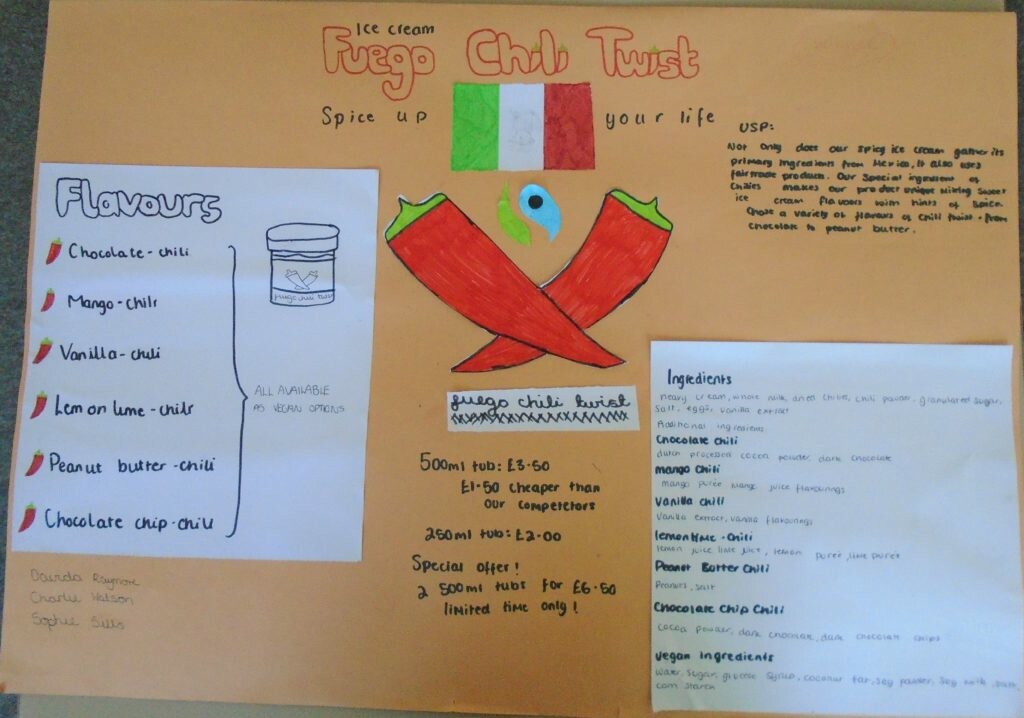 Ice cream
Fuego Chili Twist
Spice up your life
USP:
Not only does our spicy ice cream gather its
primary ingredients from Mexico, it also uses
fairtrade products. Our special ingredient of
chilies makes our product unique mixing sweet
ice cream flavours with hints of spice.
Chose a variety of flavours of chili twist - from
chocolate to peanut butter.
Flavours
Chocolate - chili
Mango - chili
Vanilla - chili
Lemon lime - chili
Peanut butter - chili
Chocolate chip - chili
fuego chili twist
ALL AVAILABLE
AS VEGAN OPTIONS
fuego chili twist
500ml tub: £3.50
£1.50 cheaper than
our competetors
250ml tub: £2.00
Special offer!
2 500ml tubs for £6.50
limited time only!
Charlie Watson
Sophie
Ingredients
heavy cream, whole milk, dried chilies, chili powder, granulated sugar,
salt, eggs, vanilla extract
Additional ingredients
Chocolate chili
dutch processed cocoa powder, dark chocolate
mango Chili
mango purée mango juice flavourings
Vanilla chili
Vanilla extract, vanilla flavourings
lemon lime - chili
lemon juice lime juice, lemon purée, lime purée
Peanut Butter Chili
Peanuts, salt
Chocolate Chip Chili
cocoa powder, dark chocolate, dark chocolate chips
vegan ingredients
water, sugar, glucose syrup, coconut fat, soy powder, soy milk, salt,
corn starch